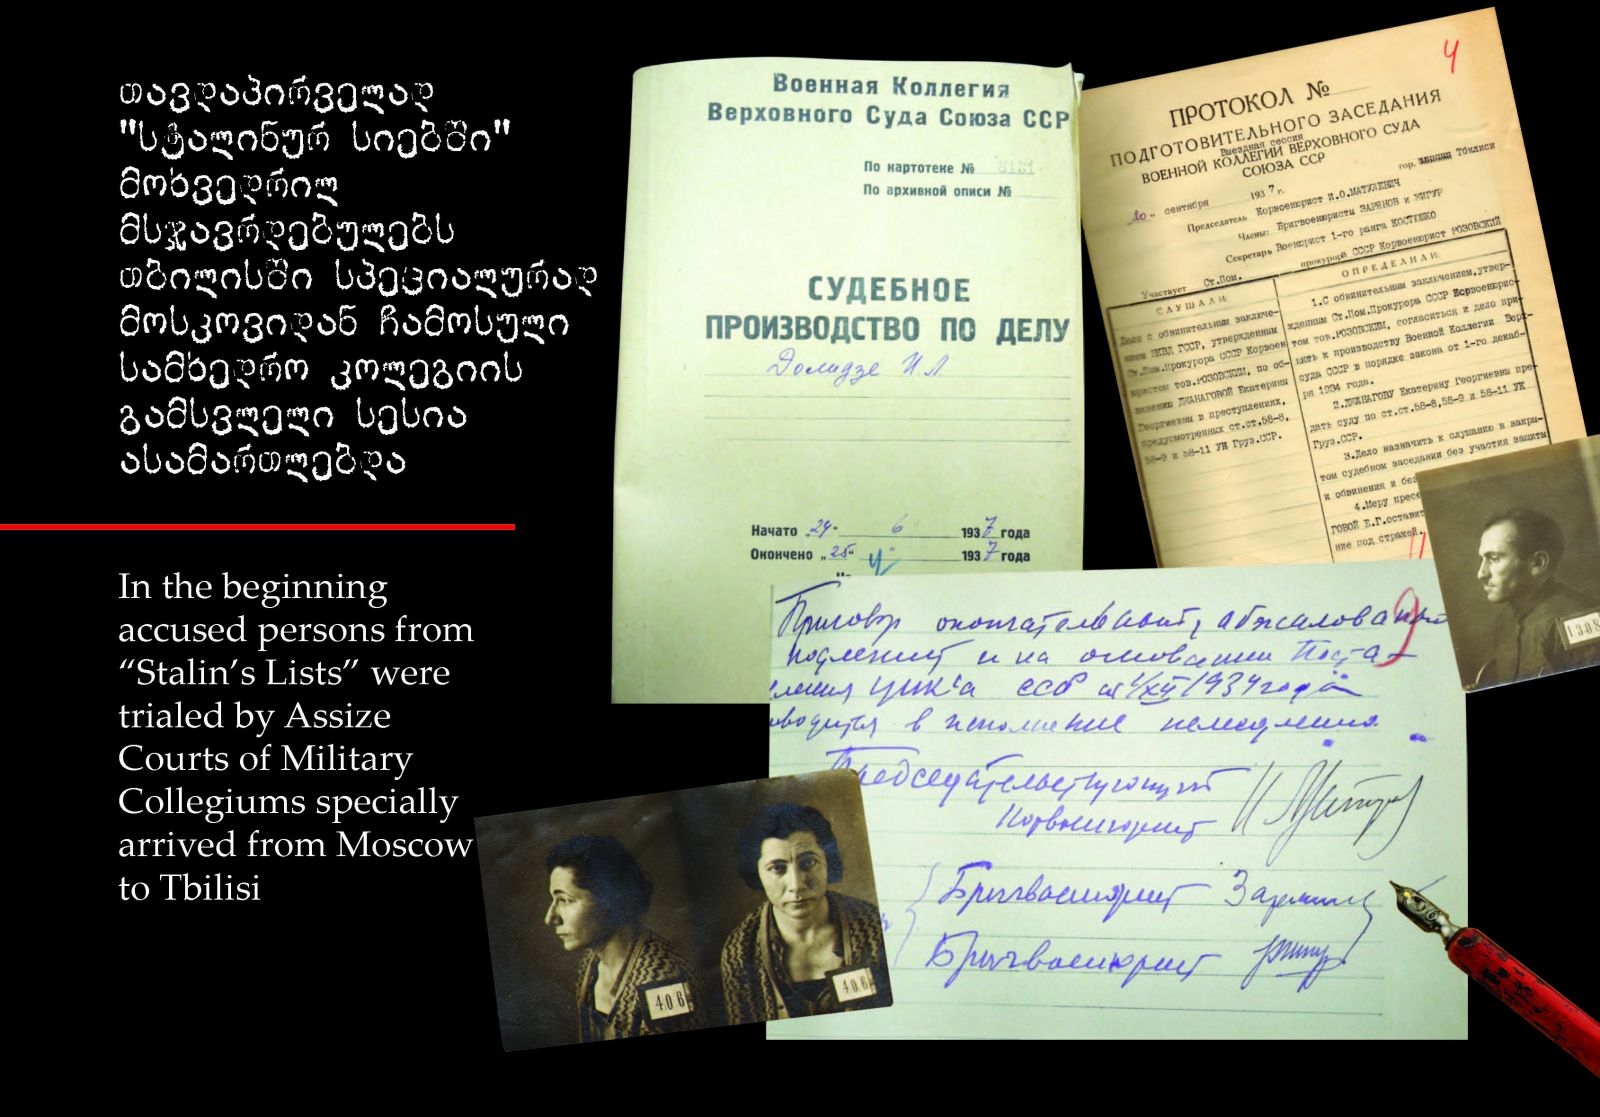 თავდაპირველად
"სტალინურ სიებში"
მოხვედრილ
მსჯავრდებულებს
თბილისში სპეციალურად
მოსკოვიდან ჩამოსული
სამხედრო კოლეგიის
გამსვლელი სესია
ასამართლებდა
In the beginning
accused persons from
“Stalin’s Lists” were
trialed by Assize
Courts of Military
Collegiums specially
arrived from Moscow
to Tbilisi
Военная Коллегия
Верховного Суда Союза ССР
По картотеке №
По архивной описи №
СУДЕБНОЕ
ПРОИЗВОДСТВО ПО ДЕЛУ
Долидзе И.Л
Начато „24“ 6 1937 года
Окончено „25“ 1937 года
4
ПРОТОКОЛ №
ПОДГОТОВИТЕЛЬНОГО ЗАСЕДАНИЯ
Выездная сессия
ВОЕННОЙ КОЛЛЕГИИ ВЕРХОВНОГО СУДА
СОЮЗА ССР
гор. Тбилиси
сентября 1937 г.
Председатель Корвоенюрист И.О.МАТУЛЕВИЧ
Члены: Бригвоенюристы ЗАРЯНОВ и ЖИГУР
Секретарь Военюрист 1-го ранга КОСТЮШКО
Участвует Ст.Пом. прокурора СССР Корвоенюрист РОЗОВСКИЙ
СЛУШАЛИ:
Дело с обвинительным заключе-
нием НКВД ГССР, утвержденным
Ст.Пом.Прокурора СССР Корвоен
юристом тов.РОЗОВСКИМ, по об-
винению ДЖАНАГОВОЙ Екатерины
Георгиевны в преступлениях,
предусмотренных ст.ст.58-8,
58-9 и 58-11 УК Груз.ССР.
ОПРЕДЕЛИЛИ:
1.С обвинительным заключением,утвер-
жденным Ст.Пом.Прокурора СССР Корвоенюрис-
том тов.РОЗОВСКИМ, согласиться и дело при-
нять к производству Военной Коллегии Верх-
суда СССР в порядке закона от 1-го декаб-
ря 1934 года.
2.ДЖАНАГОВУ Екатерину Георгиевну пре-
дать суду по ст.ст.58-8,58-9 и 58-11 УК
Груз.ССР.
3.Дело назначить к слушанию в закры-
том судебном заседании без участия защиты
и обвинения и без
4.Меру пресе
ГОВОЙ Е.Г.оставит
ние под стражей.
1308
Приговор окончательный, обжалованию
подлежит и на основании Поста-
ления ЦИК'а СССР от 1/XII 1934 года
водится в исполнение немедленно.
Председательствующий
Корвоенюрист
Бригвоенюрист Зарянов
Бригвоенюрист Жигур
406
406